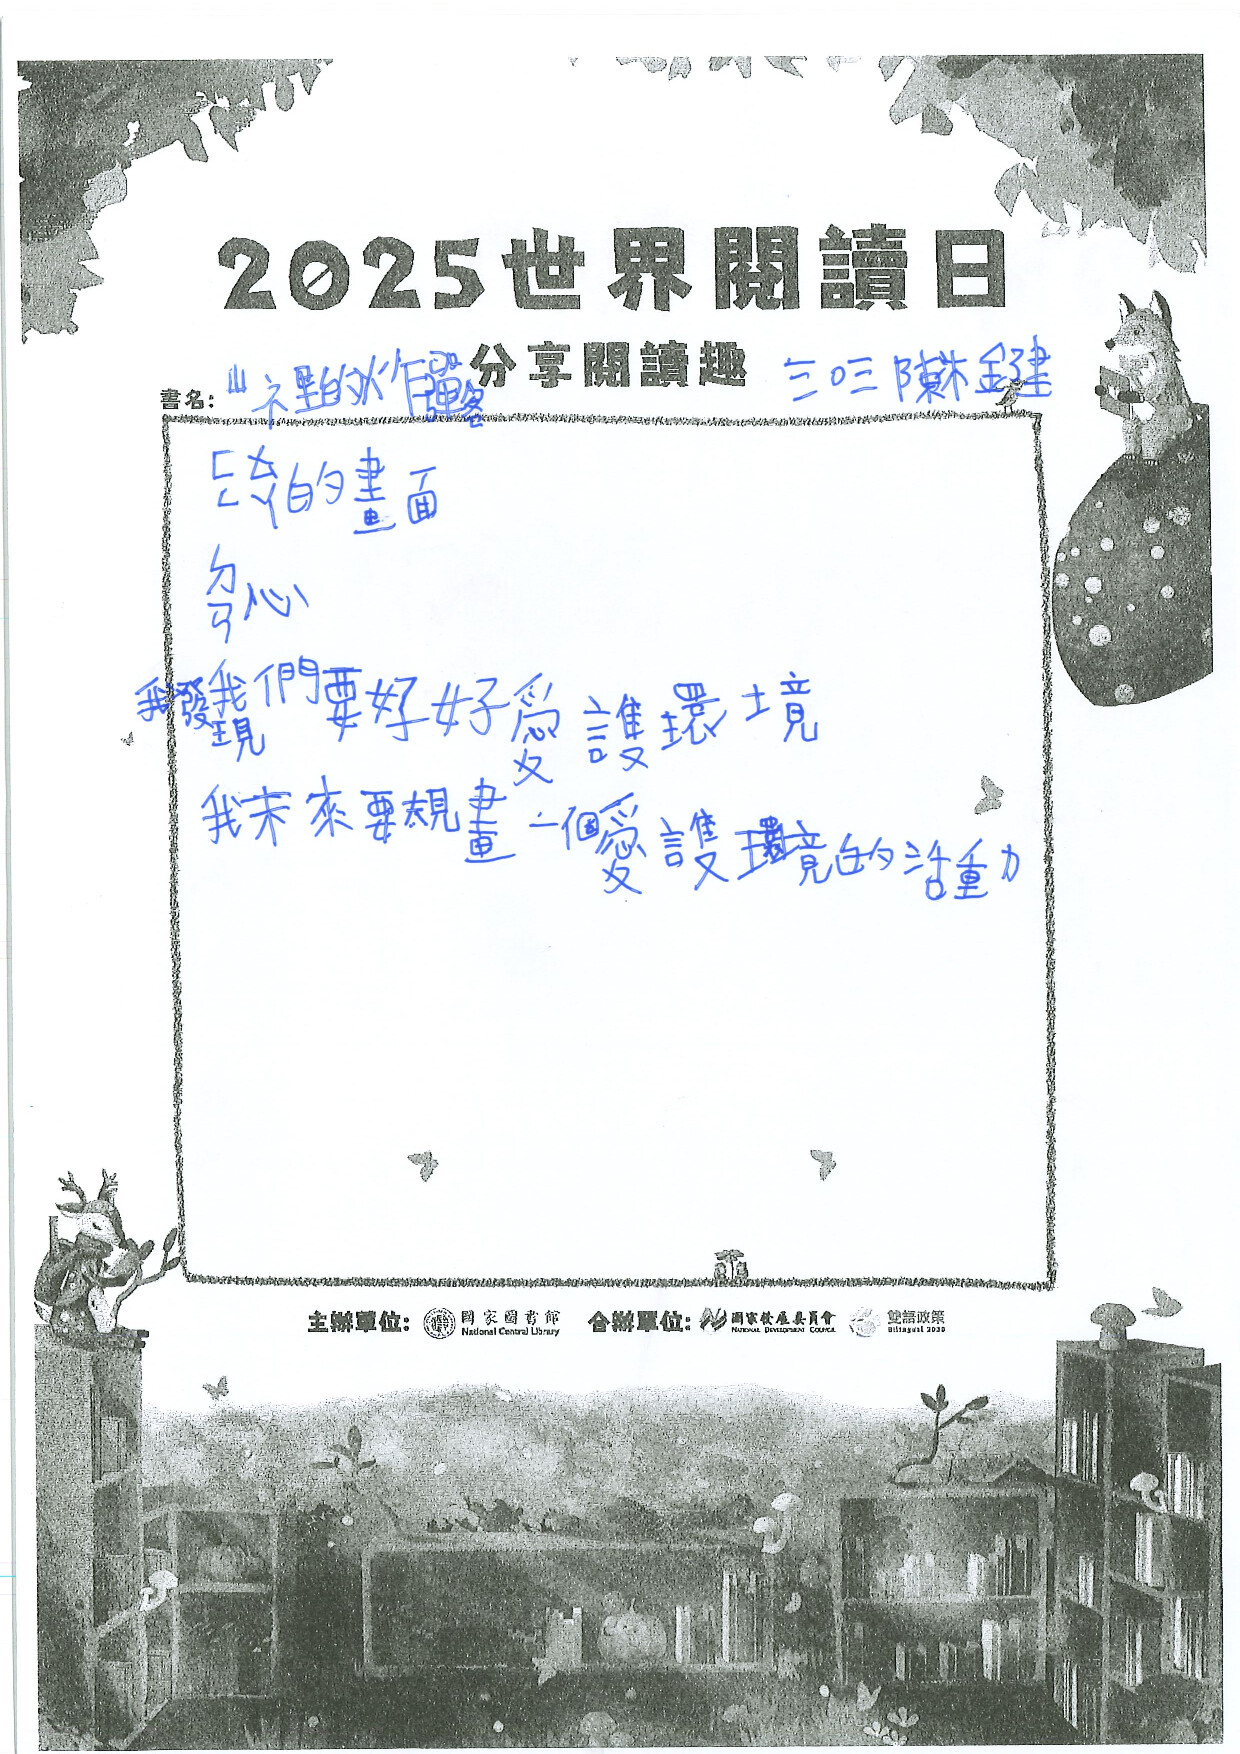 2025世界閱讀日
分享閱讀趣
書名:
的畫面
ㄉㄢ心
我發現我們要好好愛護環境
我未來要規畫一個愛護環境的活動
主辦單位: 國家圖書館 National Central Library 合辦單位: 國家發展委員會 National Development Council 雙語政策 Bilingual 2030